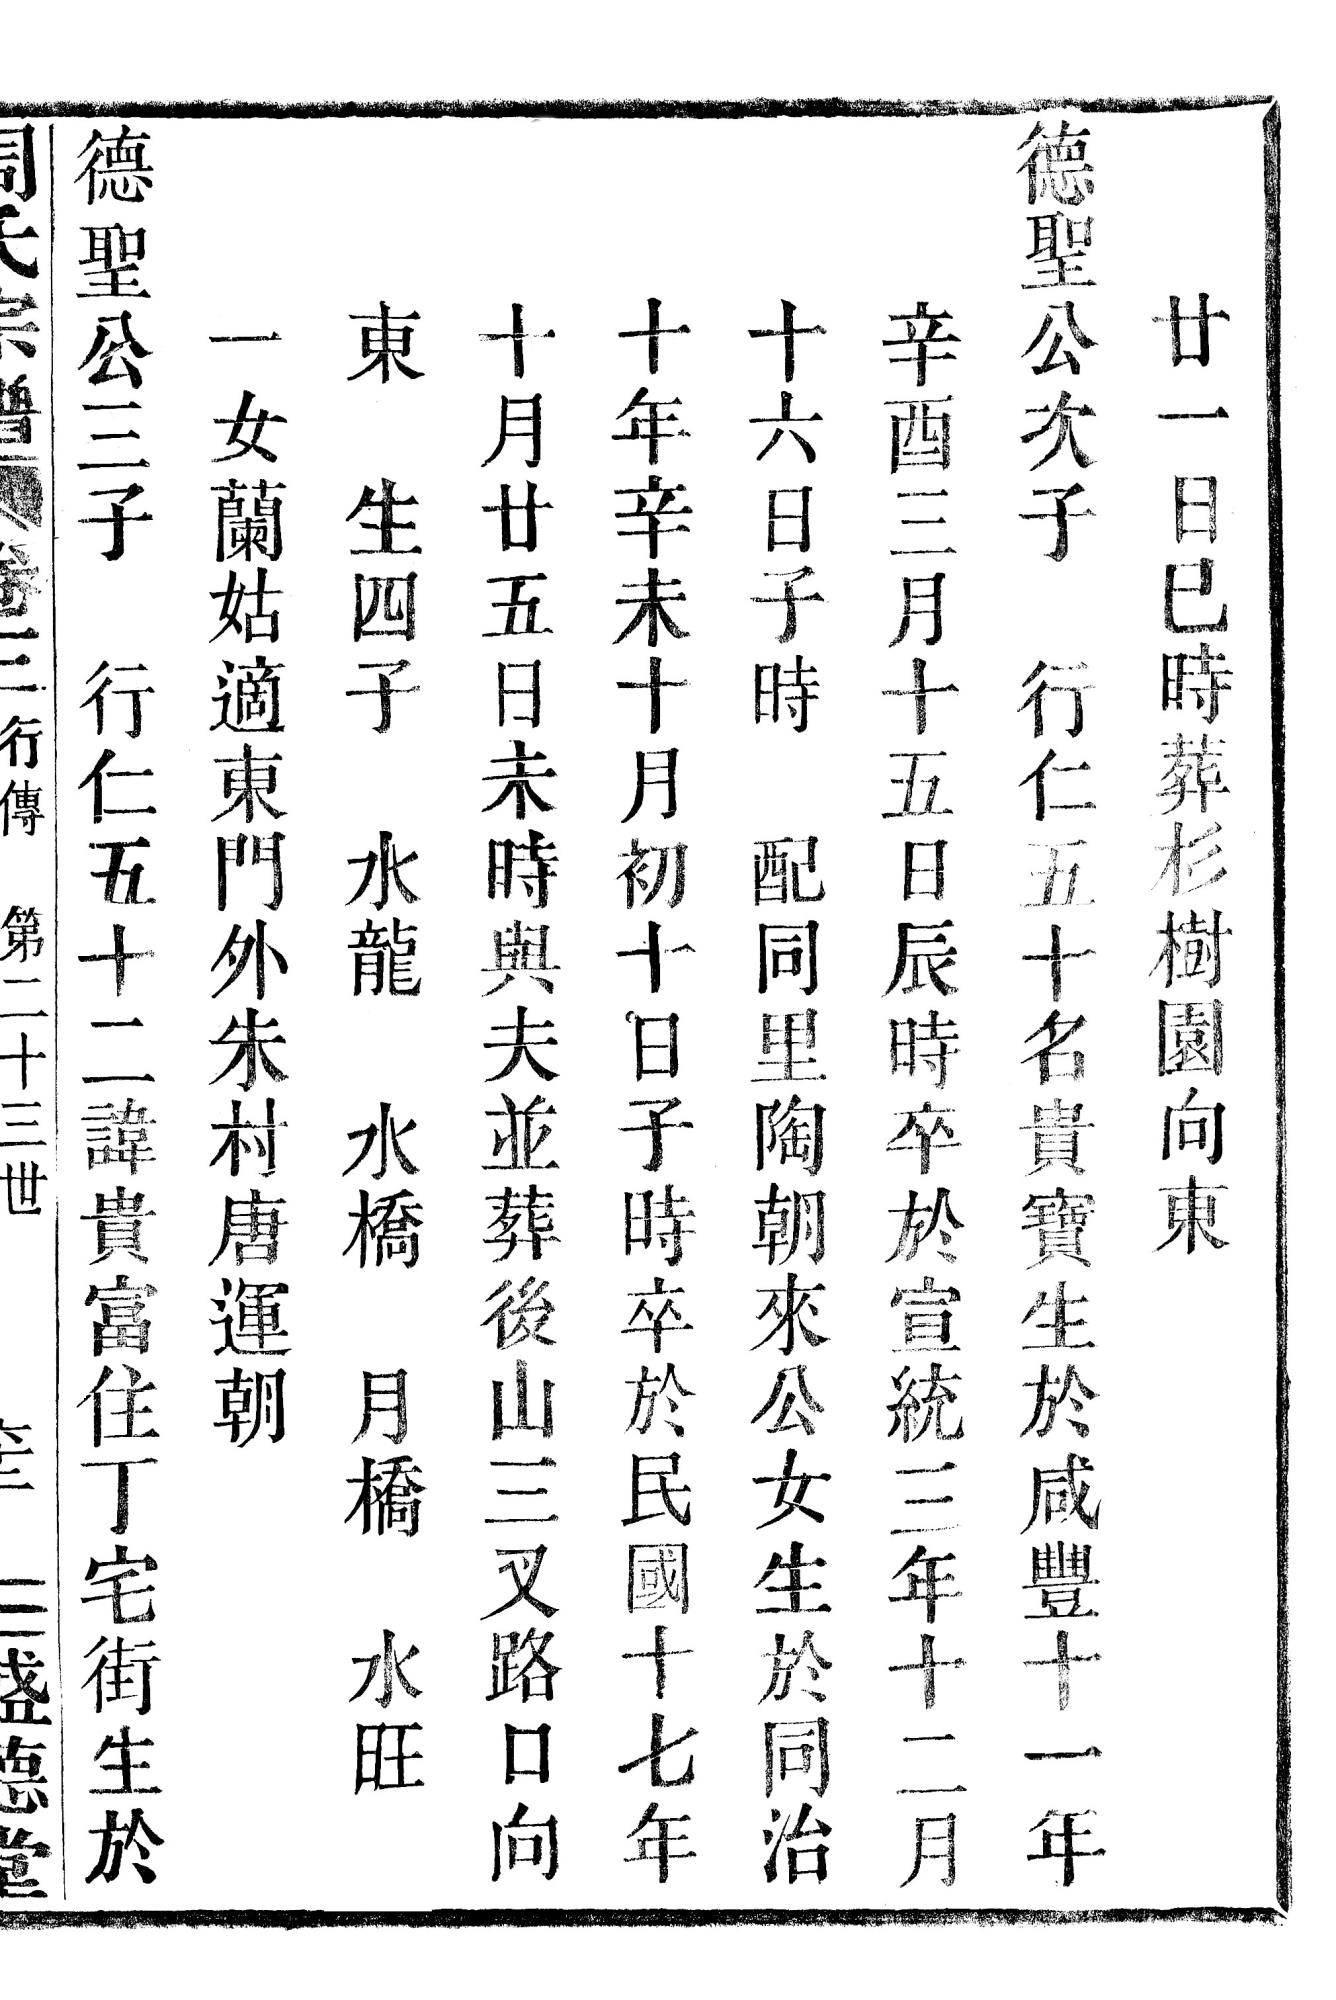 廿一日巳時葬杉樹園向東
德聖公次子　行仁五十名貴寶生於咸豐十一年
辛酉三月十五日辰時卒於宣統三年十二月
十六日子時　配同里陶朝來公女生於同治
十年辛未十月初十日子時卒於民國十七年
十月廿五日未時與夫並葬後山三叉路口向
東　生四子　水龍　水橋　月橋　水旺
一女蘭姑適東門外朱村唐運朝
德聖公三子　行仁五十二諱貴富住丁宅街生於
周氏宗譜　卷三　行傳　第二十三世　三盛德堂